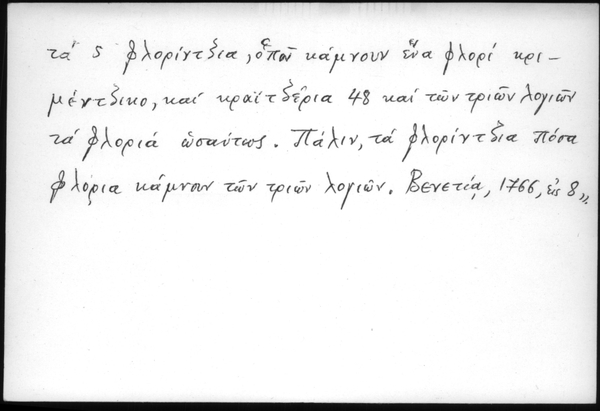 τά 5 φλορίντζια, ὁποῦ κάμνουν ἕνα φλορί κρι-
μέντζικο, καί κραϊτζέρια 48 καί τῶν τριῶν λογιῶν
τά φλοριά ὡσαύτως. Πάλιν, τά φλορίντζια πόσα
φλόρια κάμνουν τῶν τριῶν λογιῶν. Βενετίᾳ, 1766, εἰς 8ον.